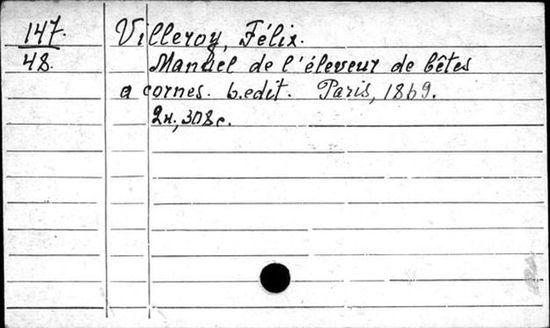 147.
48.
Villeroy, Félix.
Manuel de l'éleveur de bêtes
a cornes. 6.edit. Paris, 1869.
2н., 308с.